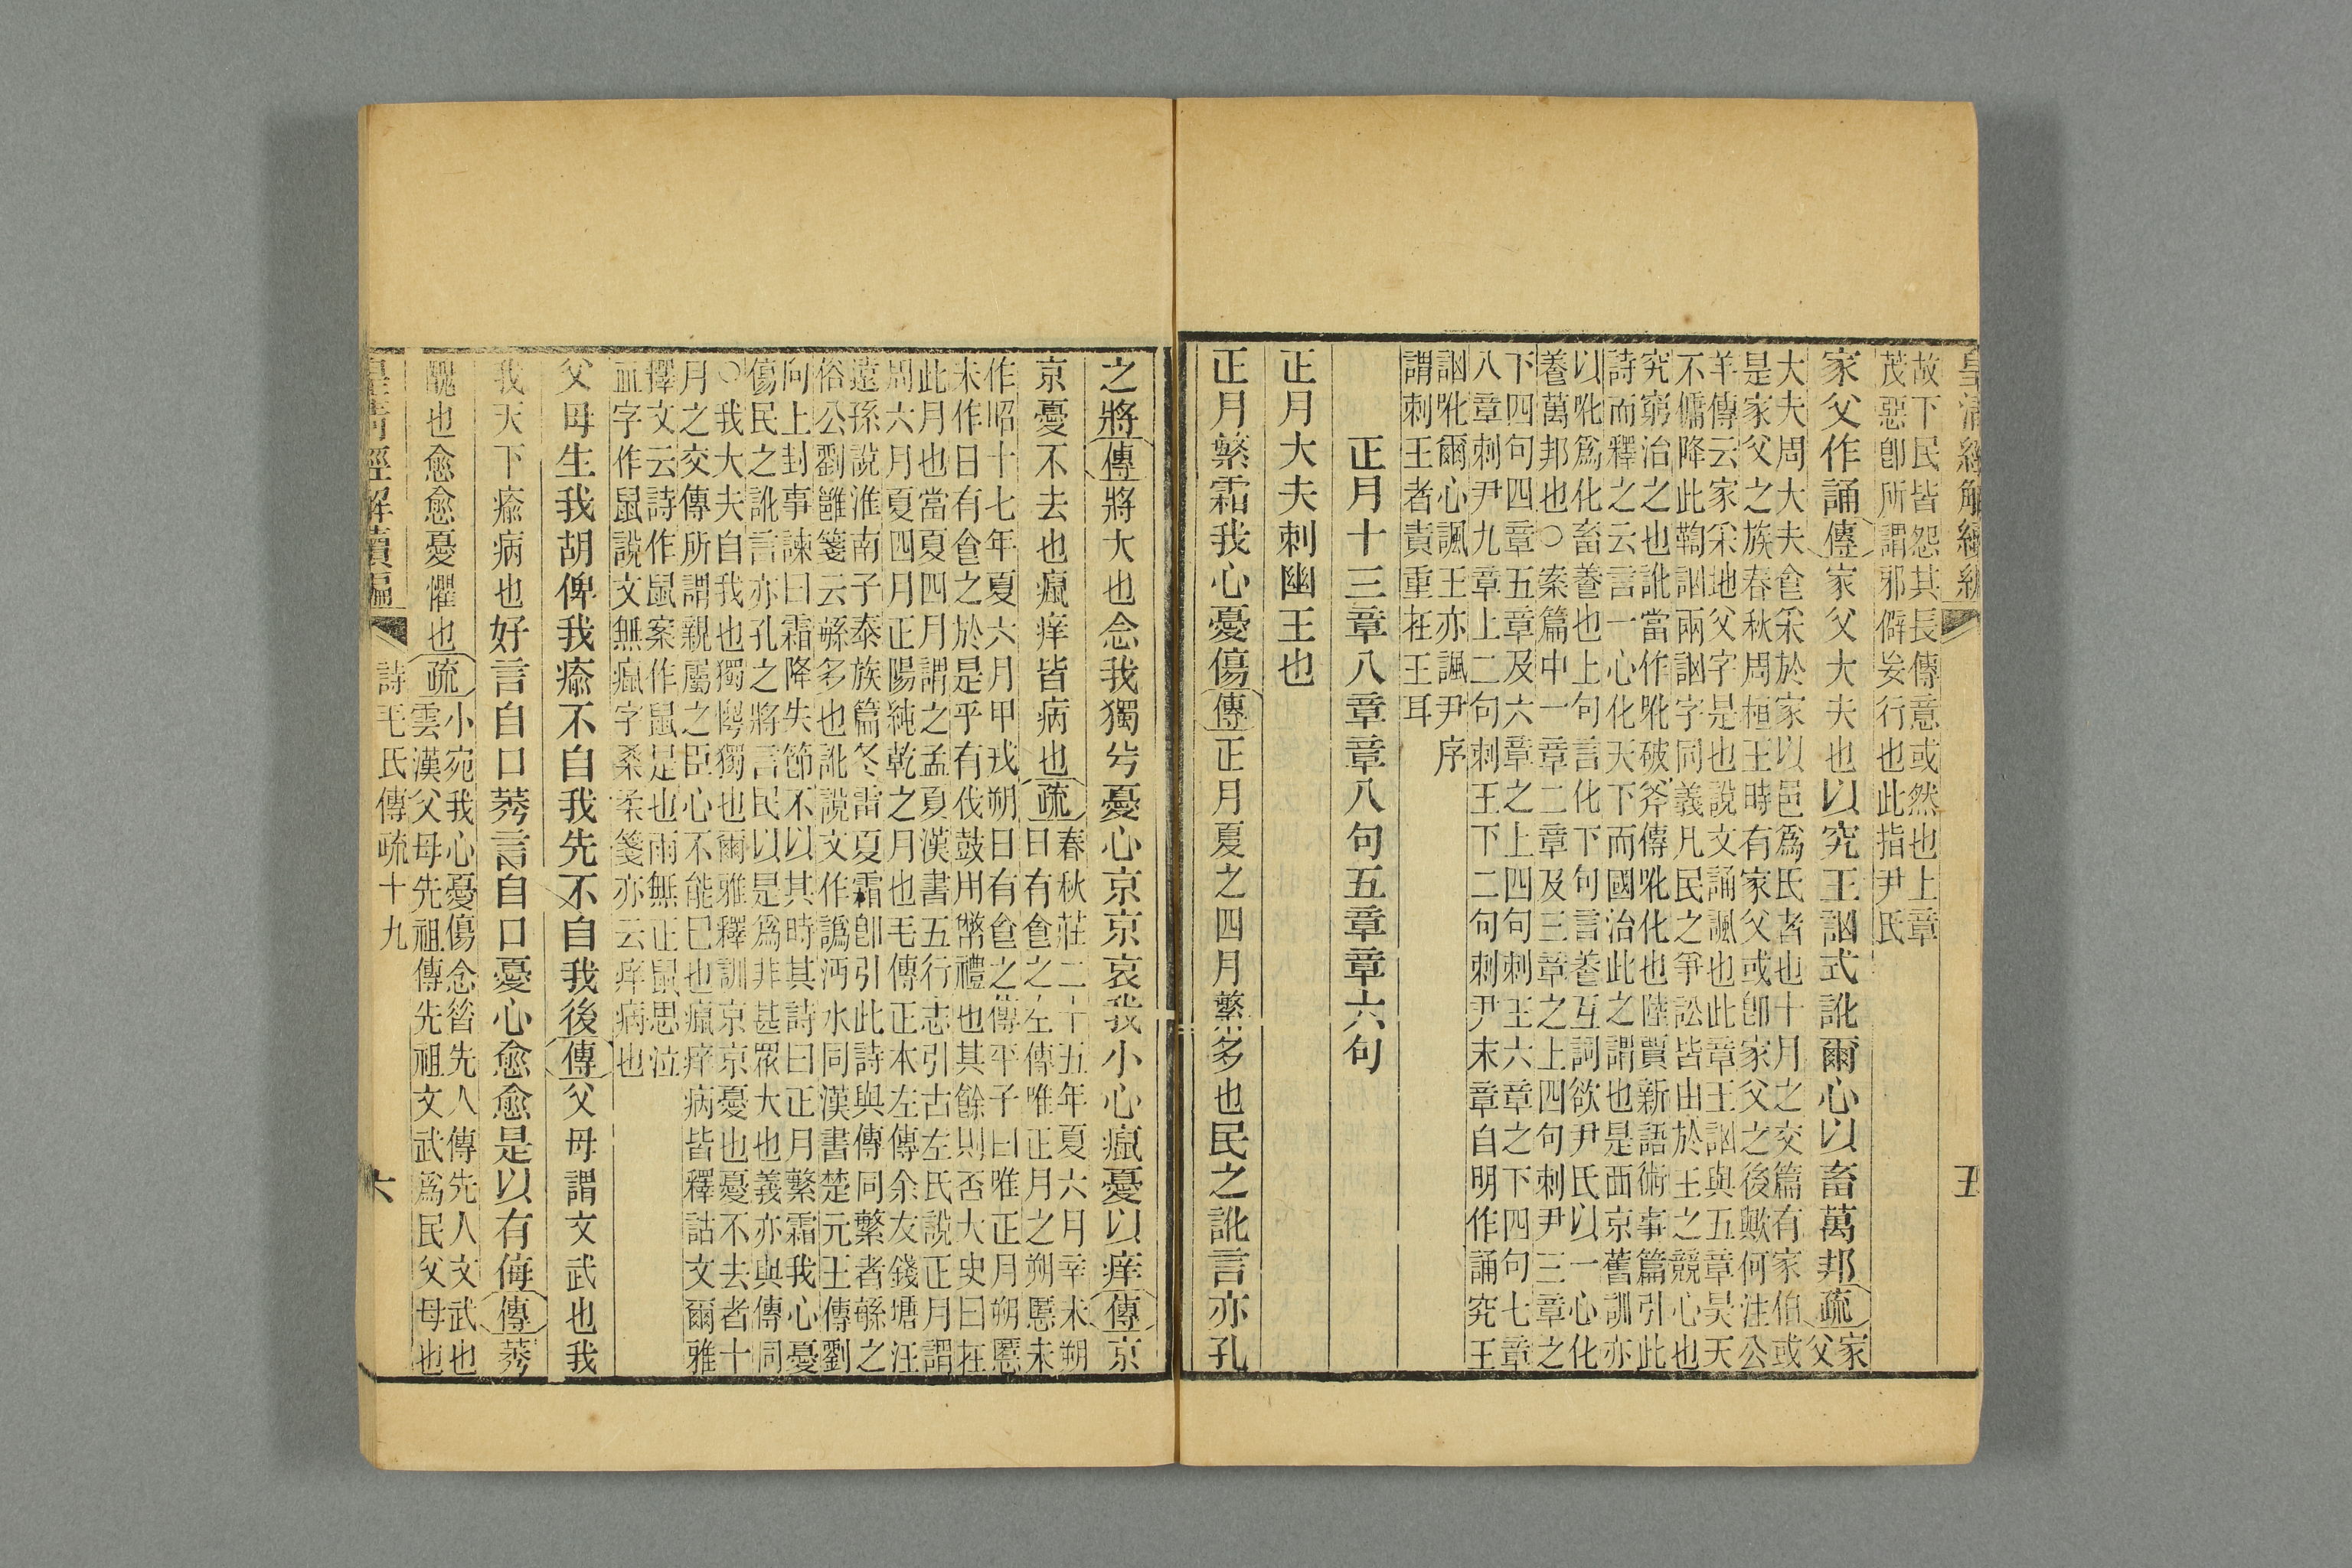 皇清經解續編
五
故下民皆怨其長傳意或然也上章
茂惡卽所謂邪僻妄行也此指尹氏
家父作誦傳家父大夫也以究王訩式訛爾心以畜萬邦疏家
父
大夫周大夫食采於家以邑爲氏者也十月之交篇有家伯或
是家父之族春秋周桓王時有家父或卽家父之後歟何注公
羊傳云家采地父字是也說文誦諷也此章王訩與五章昊天
不傭降此鞫訩兩訩字同義凡民之爭訟皆由於王之競心也
究窮治之也訛當作吪破斧傳吪化也陸賈新語術事篇引此
詩而釋之云言一心化天下而國治此之謂也是西京舊訓亦
以吪爲化畜養也上句言化下句言養互詞欲尹氏以一心化
養萬邦也○案篇中一章二章及三章之上四句刺尹三章之
下四句四章五章及六章之上四句刺王六章之下四句七章
八章刺尹九章上二句刺王下二句刺尹末章自明作誦究王
訩吪爾心諷王亦諷尹序
謂刺王者責重在王耳
正月十三章八章章八句五章章六句
正月大夫刺幽王也
正月繁霜我心憂傷傳正月夏之四月繁多也民之訛言亦孔
之將傳將大也念我獨兮憂心京京哀我小心癙憂以痒傳京
京憂不去也癙痒皆病也疏春秋莊二十五年夏六月辛未朔
日有食之左傳唯正月之朔慝未
作昭十七年夏六月甲戌朔日有食之傳平子曰唯正月朔慝
未作日有食之於是乎有伐鼓用幣禮也其餘則否大史曰在
此月也當夏四月謂之孟夏漢書五行志引古左氏說正月謂
周六月夏四月正陽純乾之月也毛傳正本左傳余友錢塘汪
遠孫說淮南子泰族篇冬雷夏霜卽引此詩與傳同繁者緐之
俗公劉雝箋云緐多也訛說文作譌沔水同漢書楚元王傳劉
向上封事諫曰霜降失節不以其時其詩曰正月繁霜我心憂
傷民之訛言亦孔之將言民以是爲非甚眾大也義亦與傳同
○我大夫自我也獨㷀獨也爾雅釋訓京京憂也憂不去者十
月之交傳所謂親屬之臣心不能已也癙痒病皆釋詁文爾雅
釋文云詩作鼠案作鼠是也雨無正鼠思泣
血字作鼠說文無癙字桑柔箋亦云痒病也
父母生我胡俾我瘉不自我先不自我後傳父母謂文武也我
我天下瘉病也好言自口莠言自口憂心愈愈是以有侮傳莠
醜也愈愈憂懼也疏小宛我心憂傷念昔先人傳先人文武也
雲漢父母先祖傳先祖文武爲民父母也
皇清經解續編
詩毛氏傳疏十九
六